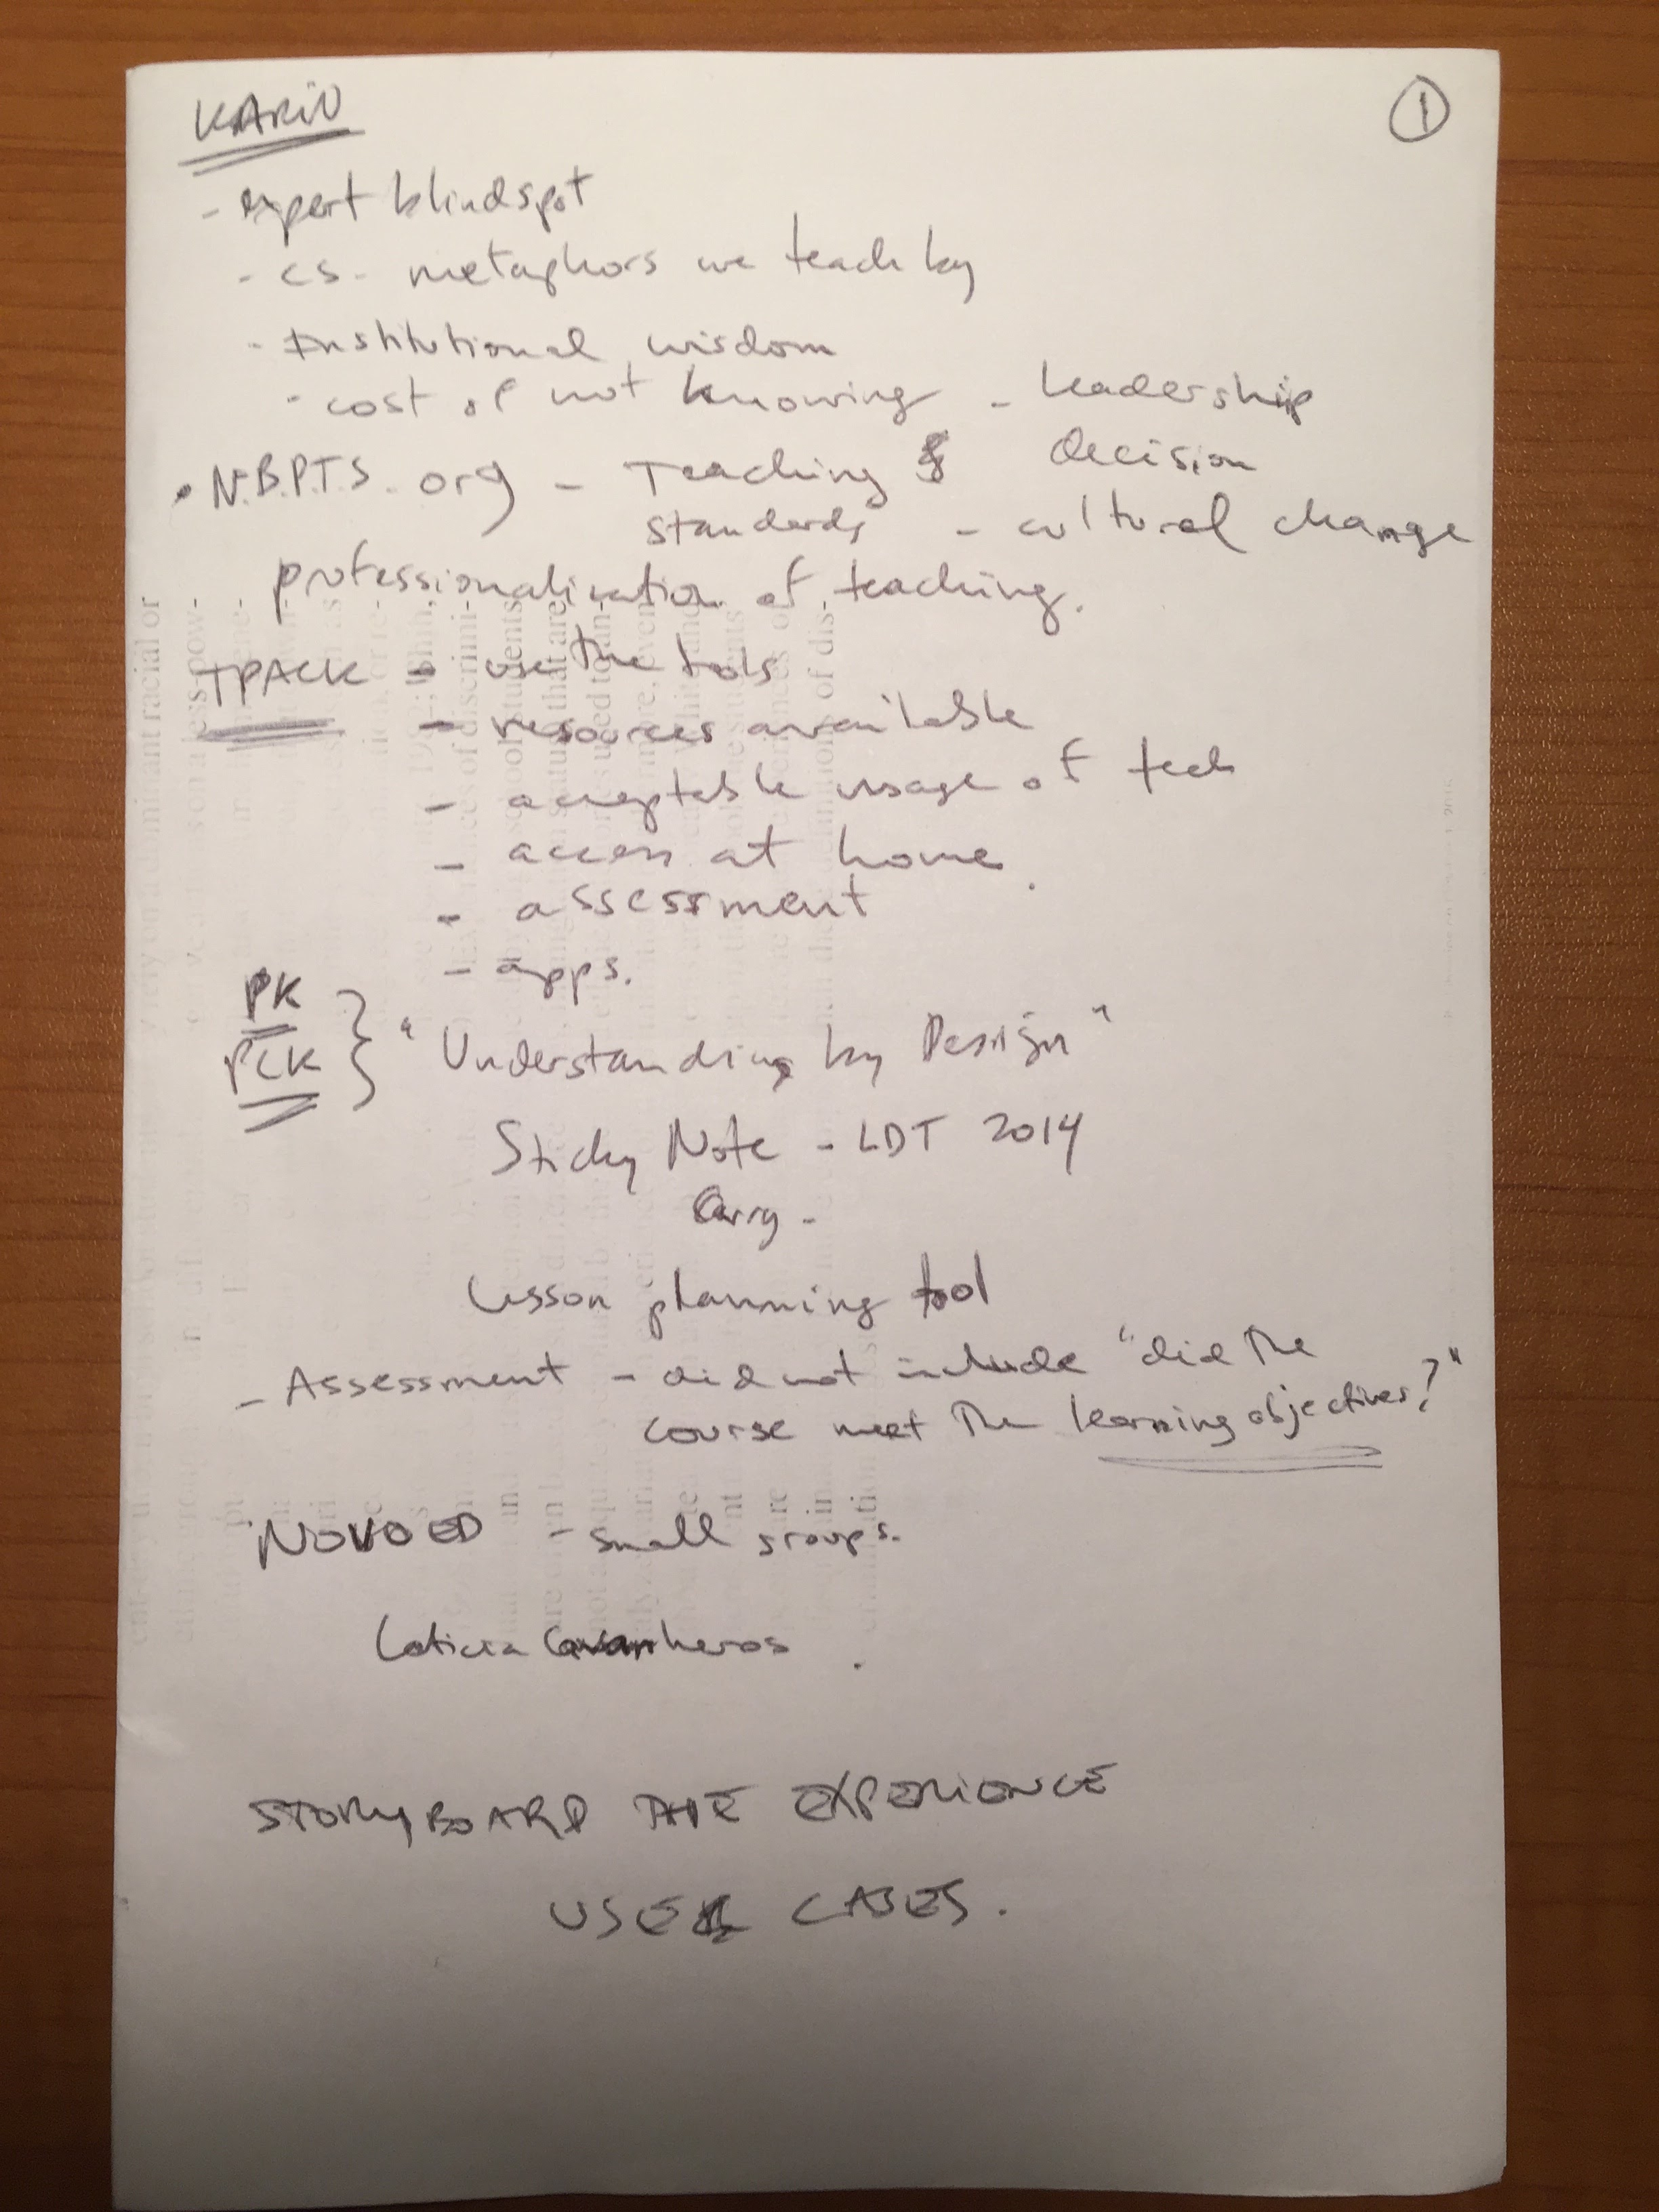 KARIN
①
- expert blindspot
- cs - metaphors we teach by
- Institutional wisdom
- cost of not knowing - leadership
decision
• N.B.P.T.S. org - Teaching
standards - cultural change
professionalization of teaching.
TPACK - use the tools
- resources available
- acceptable usage of tech
- access at home
- assessment
- apps.
PK
PCK } "Understanding by Design"
Sticky Note - LDT 2014
Lesson planning tool
- Assessment - did not include "did the
course meet the learning objectives?"
NOVOED - small groups.
STORYBOARD THE EXPERIENCE
USE CASES.